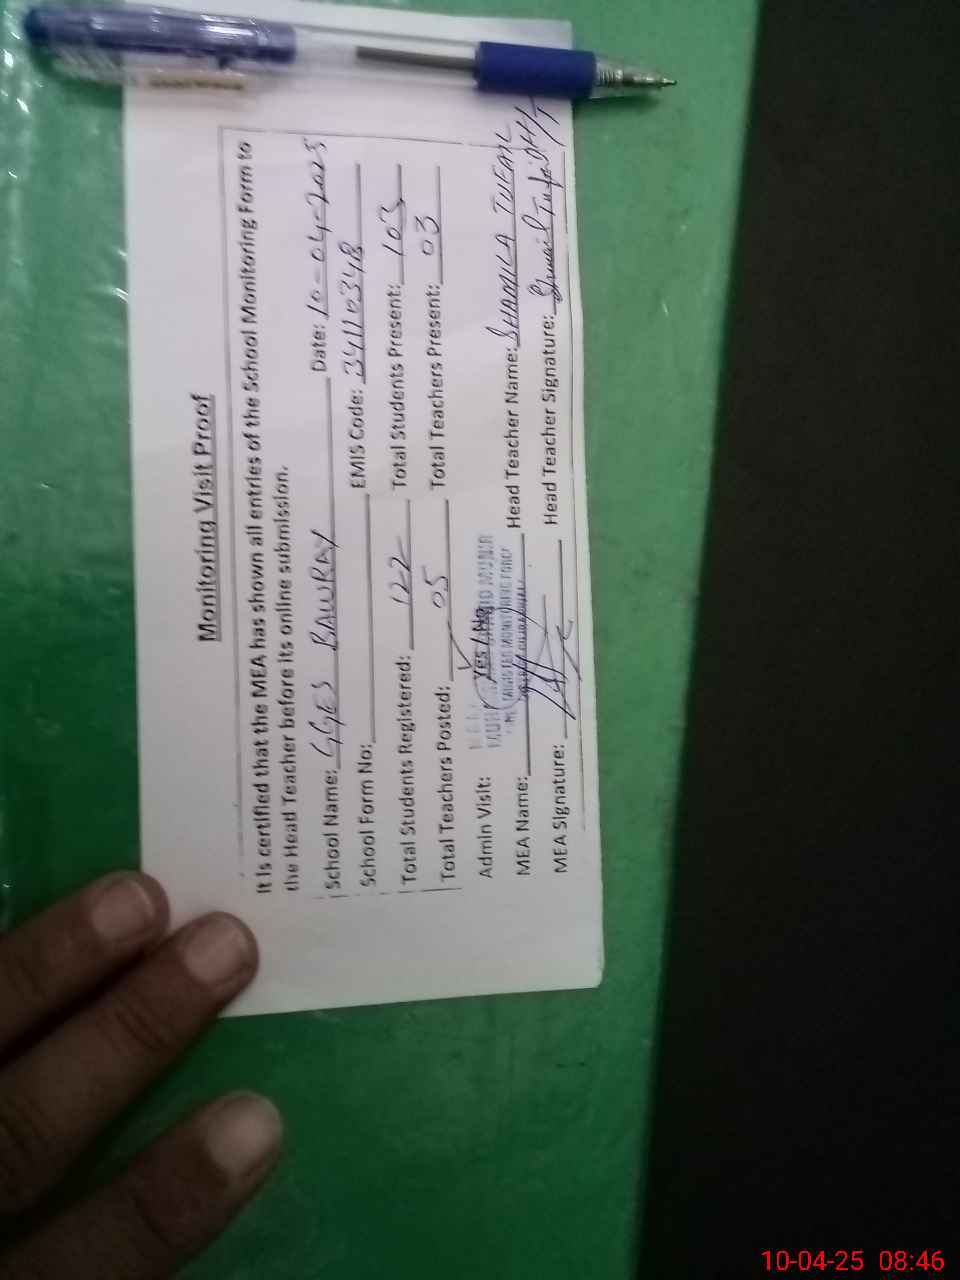 Monitoring Visit Proof
It is certified that the MEA has shown all entries of the School Monitoring Form to
the Head Teacher before its online submission.
School Name: GGES BAWRAY Date: 10-04-2025
School Form No: EMIS Code: 34110348
Total Students Registered: 122 Total Students Present: 103
Total Teachers Posted: 05 Total Teachers Present: 03
Admin Visit: Yes / No
MUNIR
MONITORING FORCE
MEA Name: Head Teacher Name: SHAMILA TUFAIL
MEA Signature: Head Teacher Signature:
10-04-25 08:46